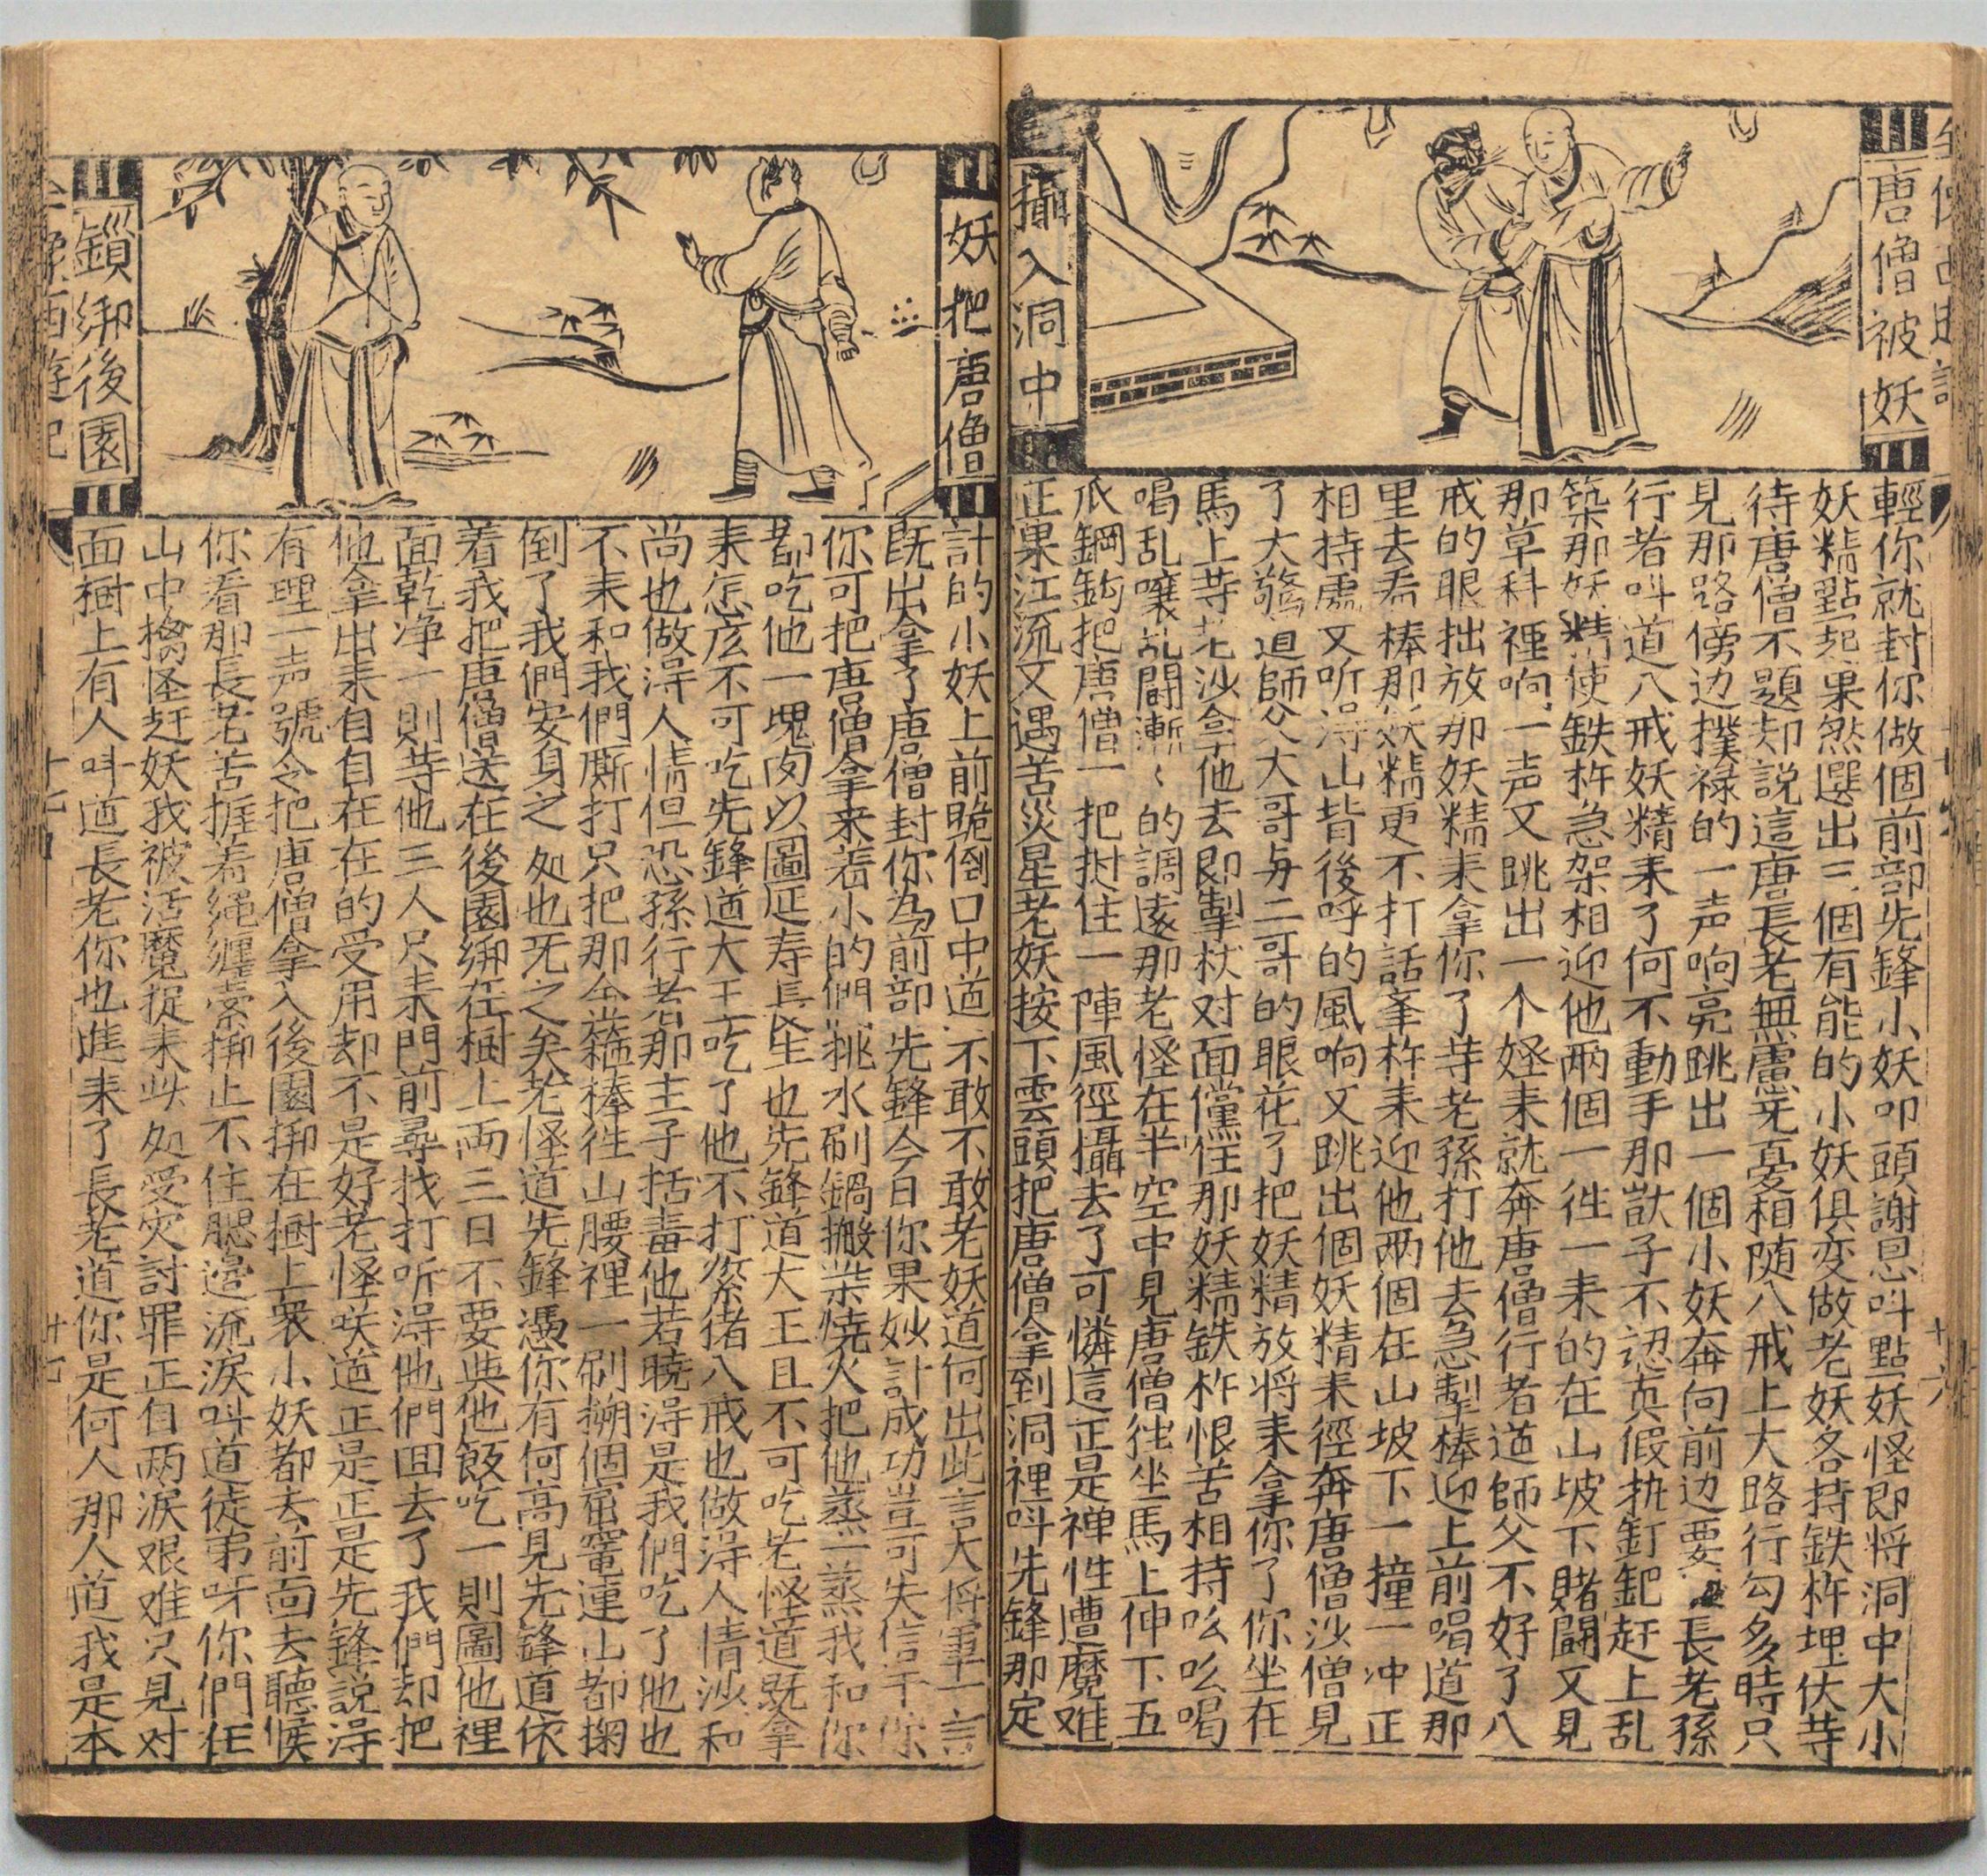 唐僧被妖
攝入洞中
輕你就封你做個前部先鋒小妖叩頭謝恩叫點妖怪即将洞中大小
妖精點起果然選出三個有能的小妖俱变做老妖各持鉄杵埋伏等
待唐僧不題却説這唐長老無慮无憂相随八戒上大路行勾多時只
見那路傍边撲禄的一声响亮跳出一個小妖奔向前边要 長老孫
行者叫道八戒妖精来了何不動手那獃子不認真假拚釘鈀赶上乱
築那妖精使鉄杵急架相迎他两個一徃一来的在山坡下賭鬪又見
那草科裡响一声又跳出一个怪来就奔唐僧行者道師父不好了八
戒的眼拙放那妖精来拿你了等老孫打他去急掣棒迎上前喝道那
里去看棒那妖精更不打話峯杵来迎他两個在山坡下一撞一冲正
相持處又听得山背後呼的風响又跳出個妖精来徑奔唐僧沙僧見
了大驚道師父大哥与二哥的眼花了把妖精放将来拿你了你坐在
馬上等老沙拿他去即掣杖对面儅住那妖精鉄杵恨苦相持吆吆喝
喝乱嚷乱鬪漸〻的調遠那老怪在半空中見唐僧独坐馬上伸下五
爪鋼鈎把唐僧一把挝住一陣風徑攝去了可憐這正是禅性遭魔难
正果江流又遇苦災星老妖按下雲頭把唐僧拿到洞裡叫先鋒那定
妖把唐僧
鎖綁後園
計的小妖上前跪倒口中道不敢不敢老妖道何出此言大将軍一言
既出拿了唐僧封你為前部先鋒今日你果妙計成功豈可失信于你
你可把唐僧拿来着小的們挑水刷鍋搬柴燒火把他蒸一蒸我和你
都吃他一塊肉以圖延寿長生也先鋒道大王且不可吃老怪道既拿
来怎庅不可吃先鋒道大王吃了他不打𦂳猪八戒也做得人情沙和
尚也做得人情但恐孫行者那主子括毒他若曉得是我們吃了他也
不来和我們厮打只把那金箍棒徃山腰裡一刷搠個窟窿連山都掬
倒了我們安身之処也无之矣老怪道先鋒憑你有何高見先鋒道依
着我把唐僧送在後園綁在樹上两三日不要與他飯吃一則圖他裡
面乾净一則等他三人只来門前尋找打听得他們回去了我們却把
他拿出来自自在在的受用却不是好老怪咲道正是正是先鋒説得
有理一声號令把唐僧拿入後園綁在樹上衆小妖都去前面去聽候
你看那長老苦捱着繩纏索綁止不住腮邉流淚叫道徒弟呀你們在
山中擒怪赶妖我被活魔捉来此処受灾討罪正自两淚艰难只見对
面樹上有人叫道長老你也進来了長老道你是何人那人道我是本
西遊記